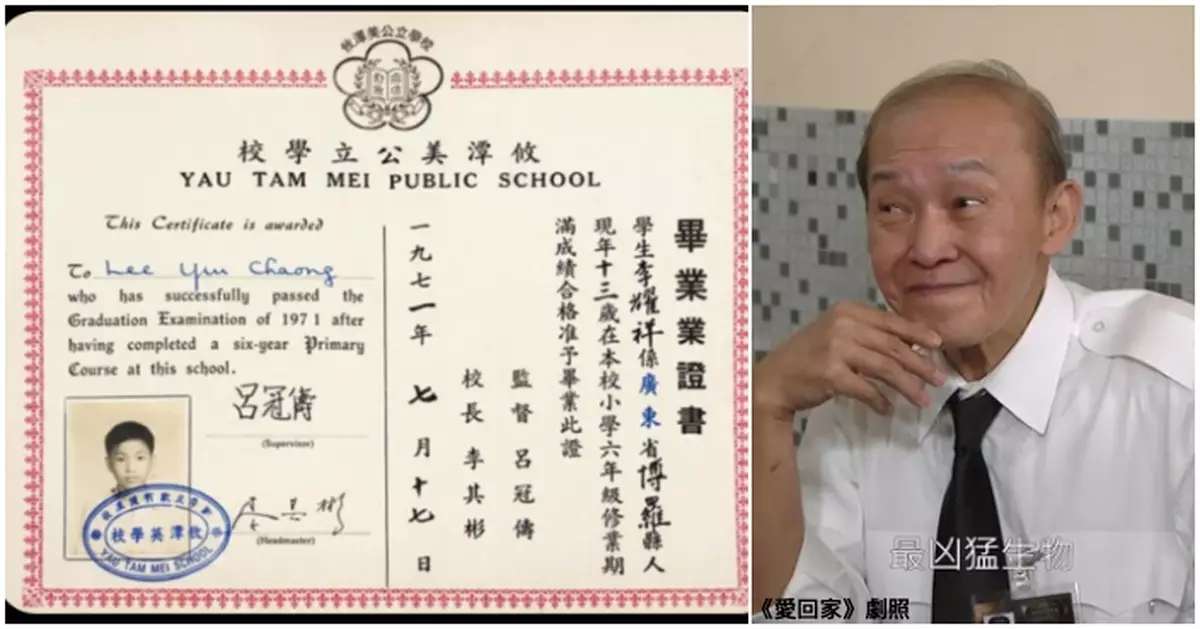 攸潭美公立學校
攸潭美公立學校
YAU TAM MEI PUBLIC SCHOOL
This Certificate is awarded
To Lee Yiu Cheong
who has successfully passed the
Graduation Examination of 1971 after
having completed a six-year Primary
Course at this school.
(Supervisor)
(Headmaster)
攸潭美學校
YAU TAM MEI SCHOOL
畢業證書
學生李耀祥係廣東省博羅縣人
現年十三歲在本校小學六年級修業期
滿成績合格准予畢業此證
監督 呂冠
校長 李其彬
一九七一年 七月十七日
最凶猛生物
《愛回家》劇照